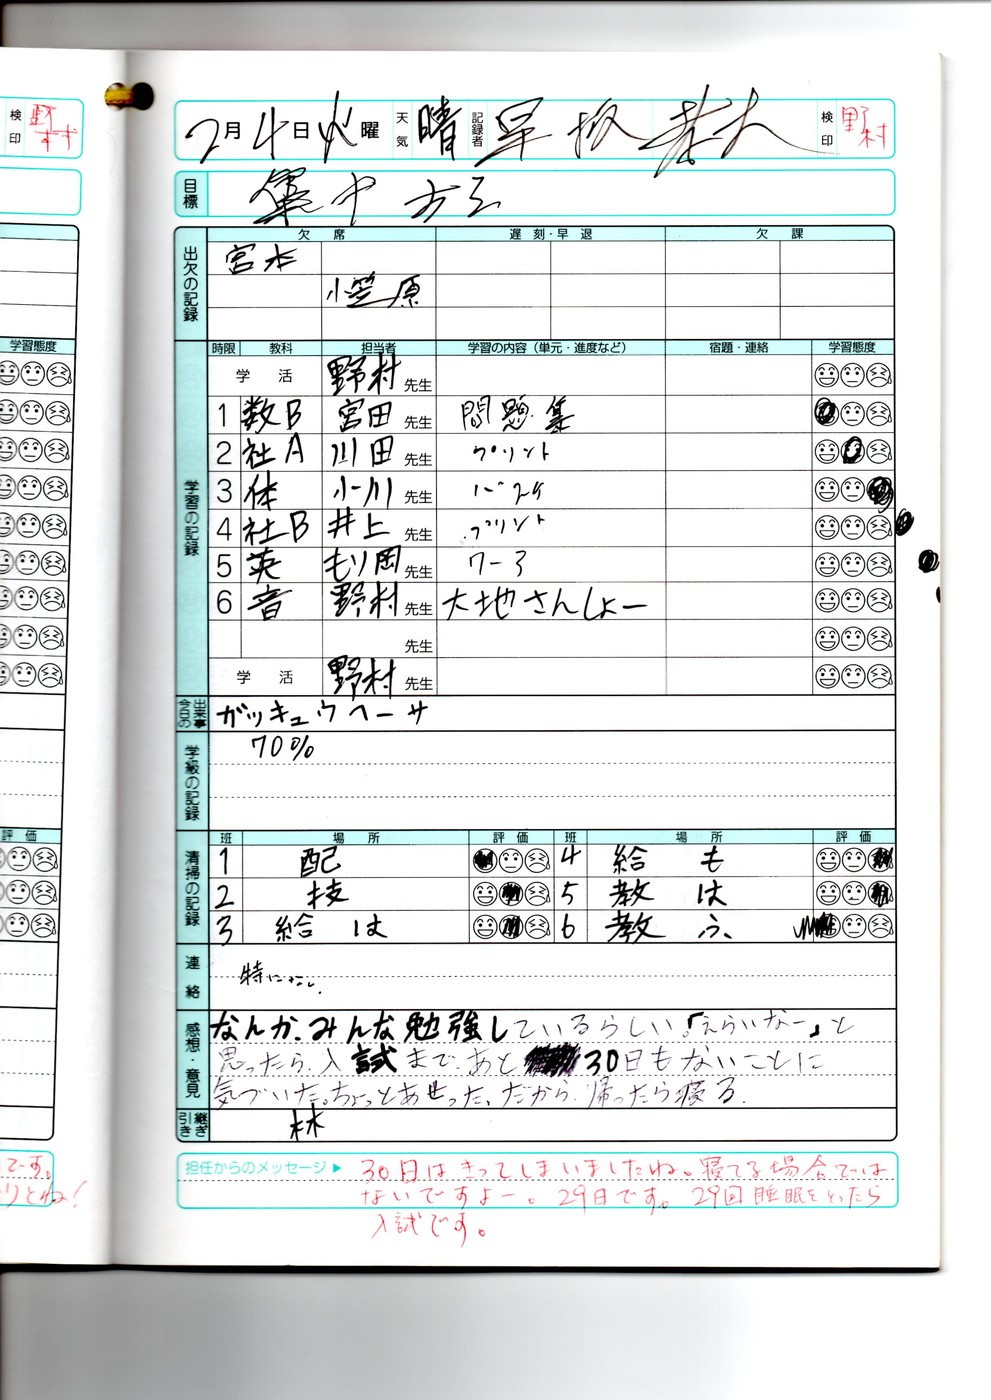 検印 野村
2月4日火曜 天気 晴 記録者 早坂 恭大 検印 野村
目標 集中
欠席 遅刻・早退 欠課
出欠の記録 宮本
小笠原
学習態度
時限 教科 担当者 学習の内容(単元・進度など) 宿題・連絡 学習態度
学活 野村先生
1 数B 宮田先生 問題集
2 社A 川田先生 プリント
学習の記録
3 体 小川先生 バスケ
4 社B 井上先生 プリント
5 英 もり岡先生 ワーク
6 音 野村先生 大地さんしょー
先生
学活 野村先生
今日の出来事 ガッキュウヘーサ
学級の記録 70%
評価
班 場所 評価 班 場所 評価
清掃の記録
1 配 4 給 も
2 技 5 教 は
3 給 は 6 教 ふ
連絡 特になし.
感想・意見 なんか、みんな勉強しているらしい「えらいなー」と
思ったら、入試まで、あと 30日もないことに
気づいた。ちょっとあせった、だから、帰ったら寝る.
引き継ぎ 林
担任からのメッセージ▶ 30日はきってしまいましたね。寝てる場合では
ないですよー。29日です。29回睡眠をとったら
入試です。
です。